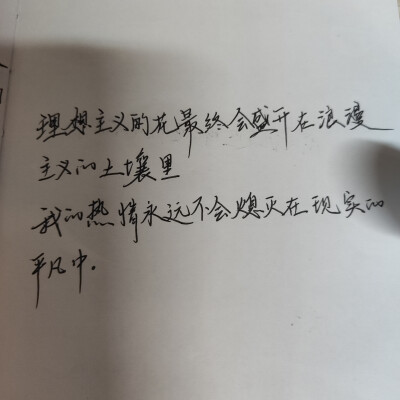 理想主义的花最终会盛开在浪漫
主义的土壤里
我的热情永远不会熄灭在现实的
平凡中.